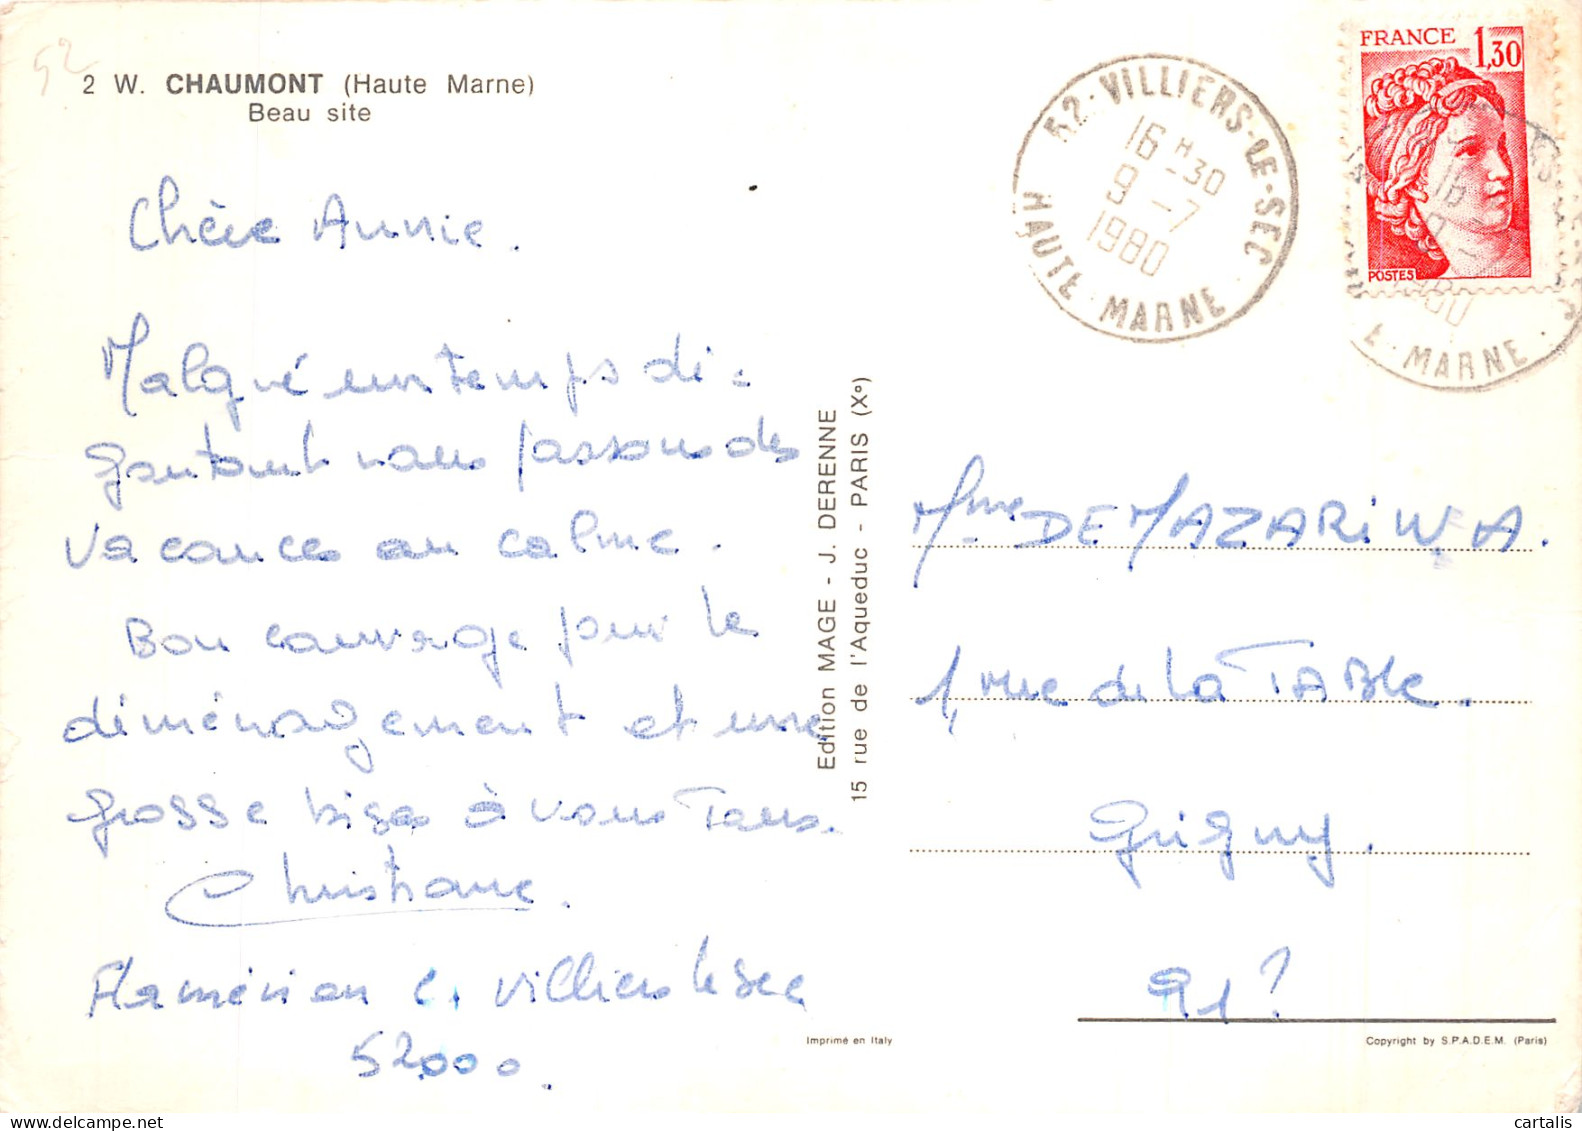 52
2 W. CHAUMONT (Haute Marne)
Beau site
Chère Annie.
Malgré un temps dé=
goutant nous passons des
vacances au calme.
Bon courage pour le
déménagement et une
grosse bise à vous Tous.
Christiane.
Villiers le sec
52000.
Edition MAGE - J. DERENNE
15 rue de l'Aqueduc - PARIS (Xe)
Imprimé en Italy
52·VILLIERS-LE-SEC
16H30
9-7
1980
HAUTE·MARNE
FRANCE 1,30
POSTES
16
1980
E·MARNE
Mme DE MAZARIW.A.
1, rue de la TABLe.
Grigny.
91?
Copyright by S.P.A.D.E.M. (Paris)
cartalis